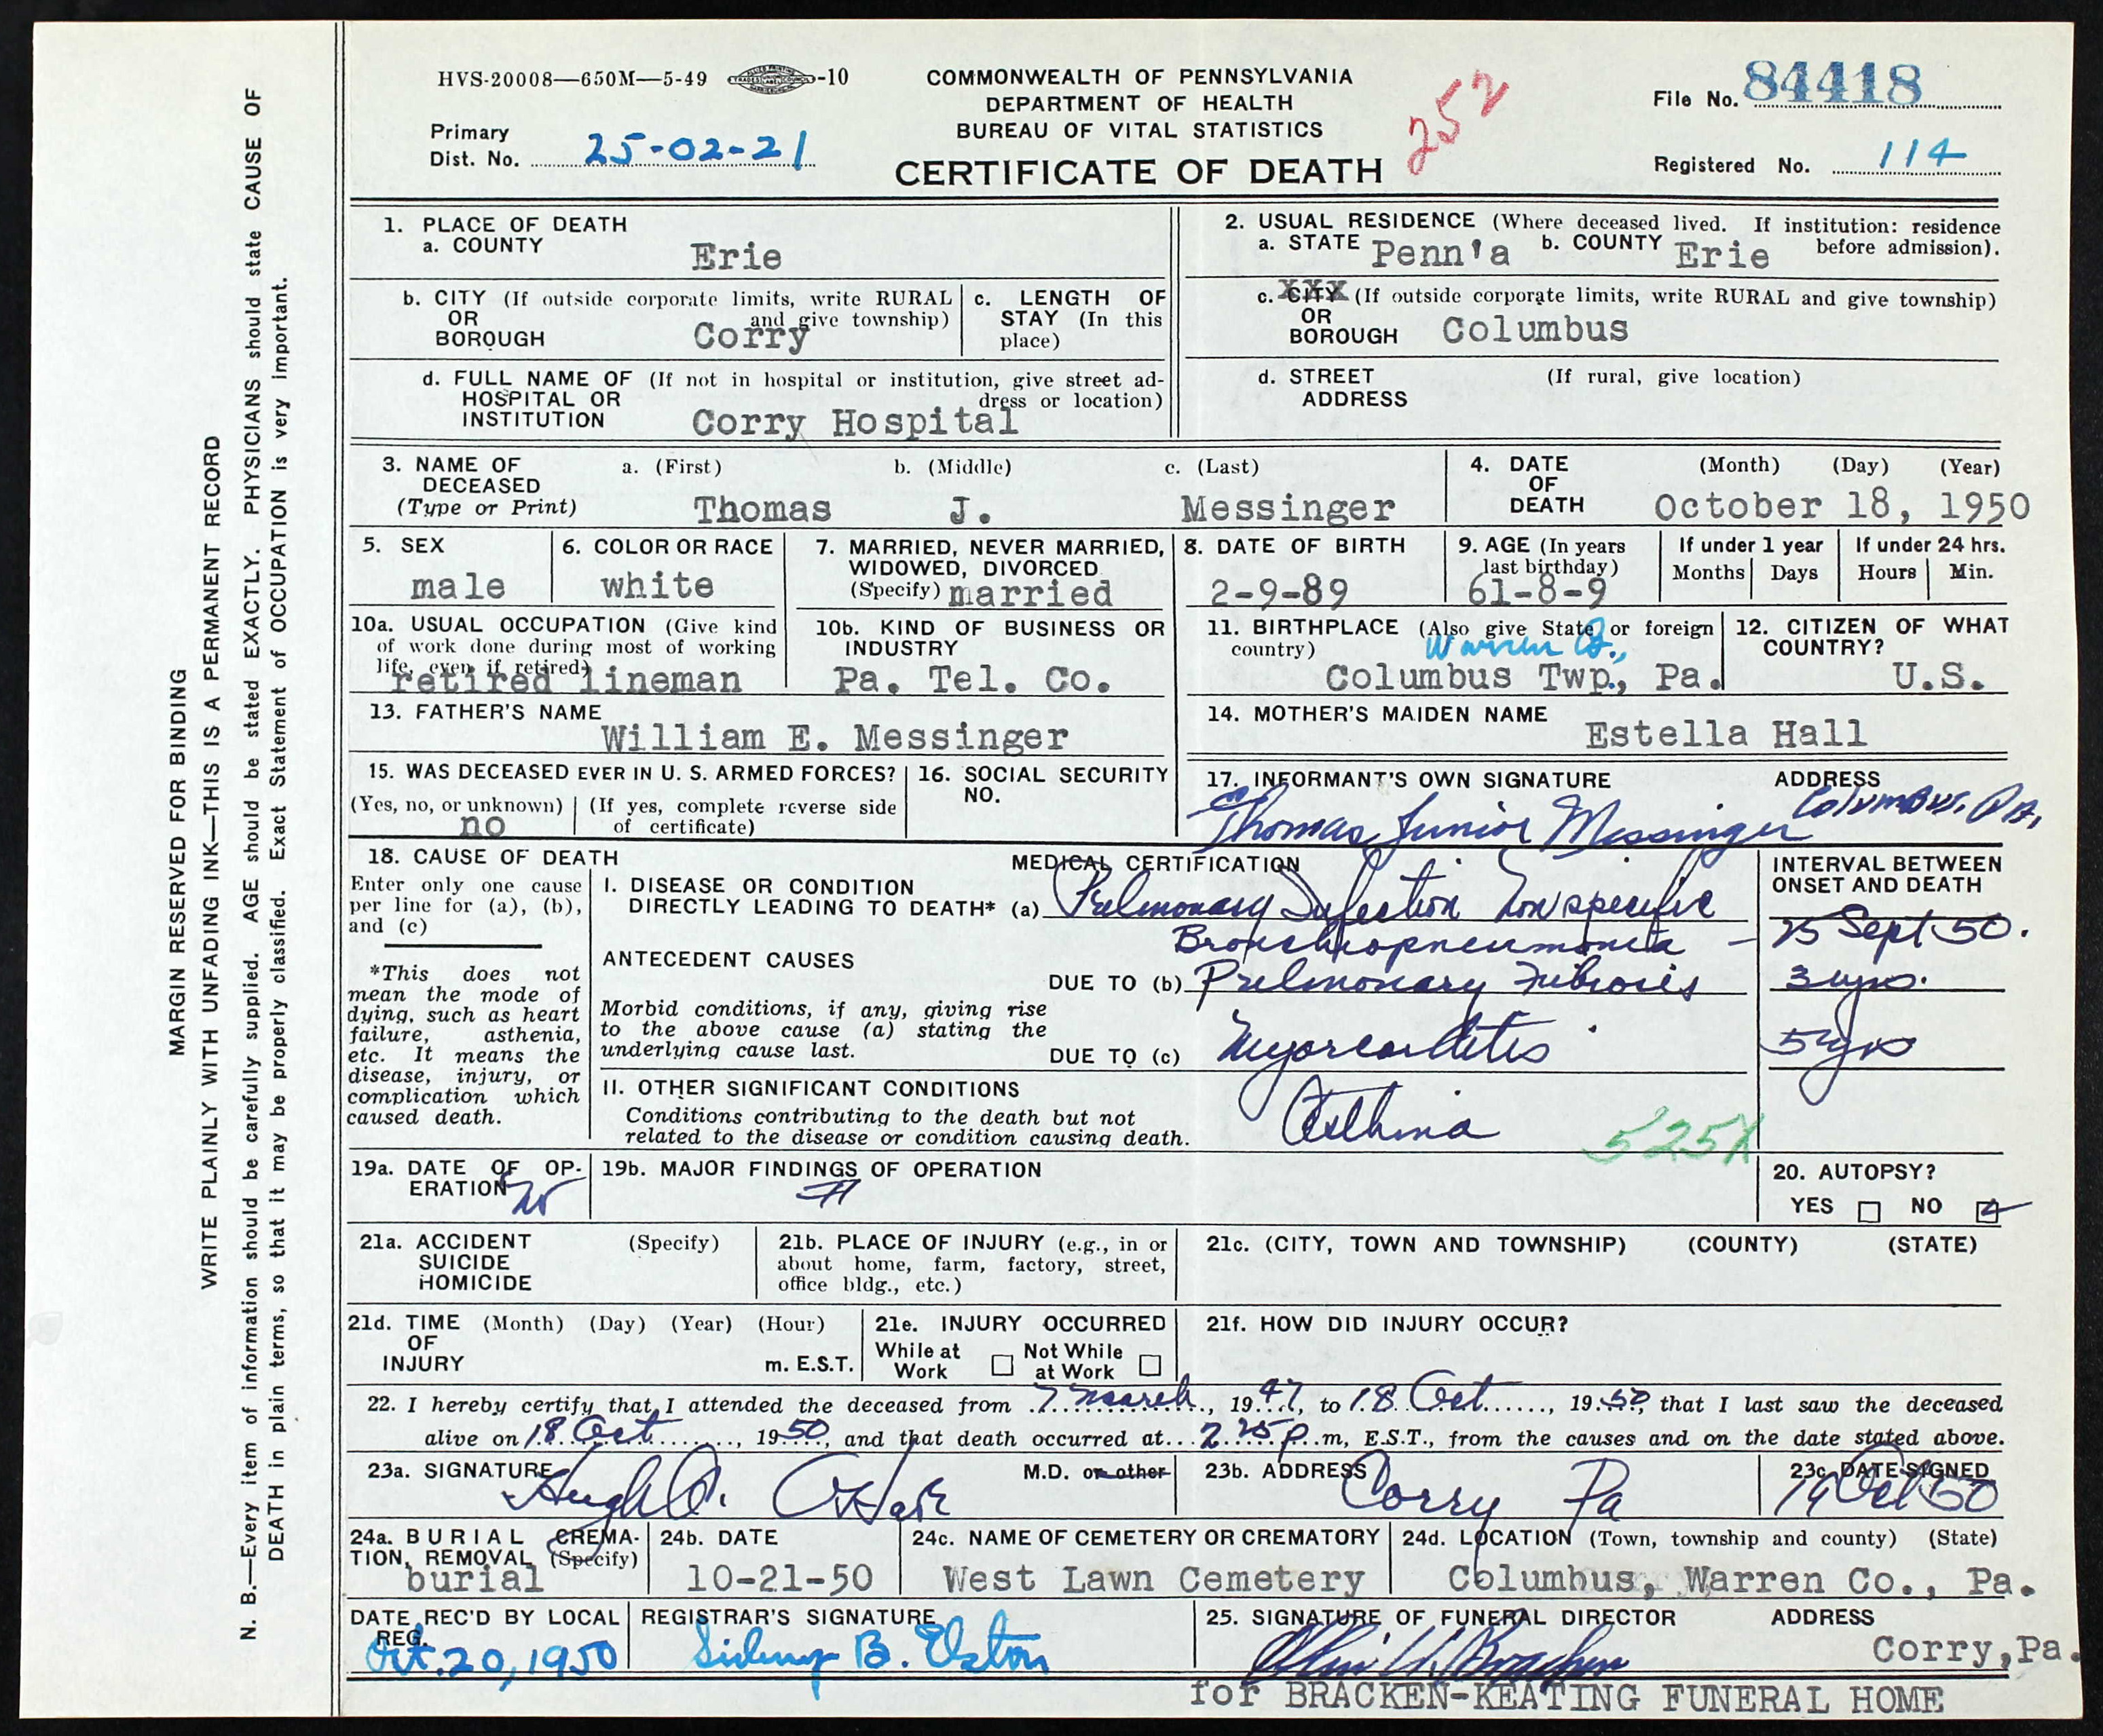 HVS-20008—650M—5-49 -10
COMMONWEALTH OF PENNSYLVANIA
DEPARTMENT OF HEALTH
BUREAU OF VITAL STATISTICS
CERTIFICATE OF DEATH
252
File No. 84418
Primary
Dist. No. 25-02-21
Registered No. 114
MARGIN RESERVED FOR BINDING
WRITE PLAINLY WITH UNFADING INK—THIS IS A PERMANENT RECORD
N. B.—Every item of information should be carefully supplied. AGE should be stated EXACTLY. PHYSICIANS should state CAUSE OF
DEATH in plain terms, so that it may be properly classified. Exact Statement of OCCUPATION is very important.
1. PLACE OF DEATH
a. COUNTY Erie
2. USUAL RESIDENCE (Where deceased lived. If institution: residence
before admission).
a. STATE Penn'a b. COUNTY Erie
b. CITY (If outside corporate limits, write RURAL
OR and give township)
BOROUGH Corry
c. LENGTH OF
STAY (In this
place)
c. CITY (If outside corporate limits, write RURAL and give township)
OR
BOROUGH Columbus
d. FULL NAME OF (If not in hospital or institution, give street ad-
HOSPITAL OR dress or location)
INSTITUTION Corry Hospital
d. STREET (If rural, give location)
ADDRESS
3. NAME OF a. (First) b. (Middle) c. (Last)
DECEASED
(Type or Print) Thomas J. Messinger
4. DATE (Month) (Day) (Year)
OF
DEATH October 18, 1950
5. SEX
male
6. COLOR OR RACE
white
7. MARRIED, NEVER MARRIED,
WIDOWED, DIVORCED
(Specify) married
8. DATE OF BIRTH
2-9-89
9. AGE (In years
last birthday)
61-8-9
If under 1 year
Months Days
If under 24 hrs.
Hours Min.
10a. USUAL OCCUPATION (Give kind
of work done during most of working
life, even if retired)
retired lineman
10b. KIND OF BUSINESS OR
INDUSTRY
Pa. Tel. Co.
11. BIRTHPLACE (Also give State or foreign
country) Warren Co.,
Columbus Twp., Pa.
12. CITIZEN OF WHAT
COUNTRY?
U.S.
13. FATHER'S NAME
William E. Messinger
14. MOTHER'S MAIDEN NAME
Estella Hall
15. WAS DECEASED EVER IN U. S. ARMED FORCES?
(Yes, no, or unknown) (If yes, complete reverse side
of certificate)
no
16. SOCIAL SECURITY
NO.
17. INFORMANT'S OWN SIGNATURE ADDRESS
Thomas Junior Messinger Columbus, Pa,
18. CAUSE OF DEATH
Enter only one cause
per line for (a), (b),
and (c)
*This does not
mean the mode of
dying, such as heart
failure, asthenia,
etc. It means the
disease, injury, or
complication which
caused death.
MEDICAL CERTIFICATION
I. DISEASE OR CONDITION
DIRECTLY LEADING TO DEATH* (a) Pulmonary Infection Nonspecific
Bronchopneumonia —
ANTECEDENT CAUSES
DUE TO (b) Pulmonary Fibrosis
Morbid conditions, if any, giving rise
to the above cause (a) stating the
underlying cause last.
DUE TO (c) Myocarditis
II. OTHER SIGNIFICANT CONDITIONS
Conditions contributing to the death but not
related to the disease or condition causing death.
Asthma
525X
INTERVAL BETWEEN
ONSET AND DEATH
25 Sept 50.
3 yrs.
5 yrs
19a. DATE OF OP-
ERATION
19b. MAJOR FINDINGS OF OPERATION
20. AUTOPSY?
YES NO
21a. ACCIDENT (Specify)
SUICIDE
HOMICIDE
21b. PLACE OF INJURY (e.g., in or
about home, farm, factory, street,
office bldg., etc.)
21c. (CITY, TOWN AND TOWNSHIP) (COUNTY) (STATE)
21d. TIME (Month) (Day) (Year) (Hour)
OF
INJURY m. E.S.T.
21e. INJURY OCCURRED
While at Work Not While at Work
21f. HOW DID INJURY OCCUR?
22. I hereby certify that I attended the deceased from 7 March, 1947, to 18 Oct, 1950, that I last saw the deceased
alive on 18 Oct, 1950, and that death occurred at 2 25 P.m, E.S.T., from the causes and on the date stated above.
23a. SIGNATURE M.D. or other
23b. ADDRESS
Corry Pa
23c. DATE SIGNED
19 Oct 50
24a. BURIAL CREMA-
TION, REMOVAL (Specify)
burial
24b. DATE
10-21-50
24c. NAME OF CEMETERY OR CREMATORY
West Lawn Cemetery
24d. LOCATION (Town, township and county) (State)
Columbus, Warren Co., Pa.
DATE REC'D BY LOCAL
REG.
Oct. 20, 1950
REGISTRAR'S SIGNATURE
Sidney B. Elston
25. SIGNATURE OF FUNERAL DIRECTOR ADDRESS
Corry, Pa.
for BRACKEN-KEATING FUNERAL HOME